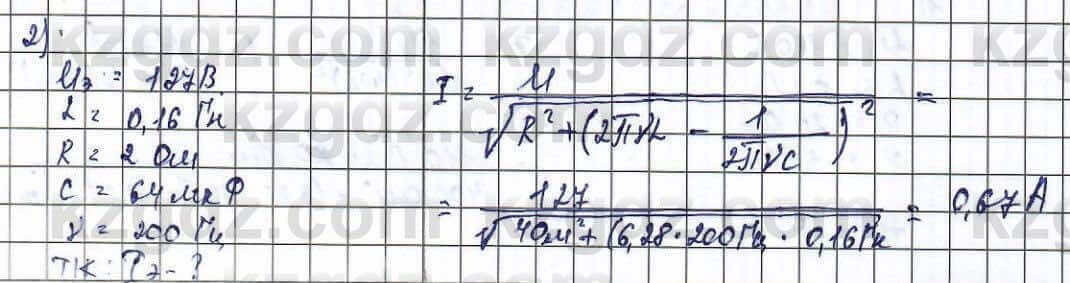 2)
Uэ = 127В
L = 0,16 Гн
R = 2 Ом
C = 64 мкФ
ν = 200 Гц
ТК: Iэ - ?
I = U / √R² + (2πνL - 1 / 2πνC)² =
= 127 / √4Ом² + (6,28 · 200Гц · 0,16Гн = 0,67А
kzgdz.com